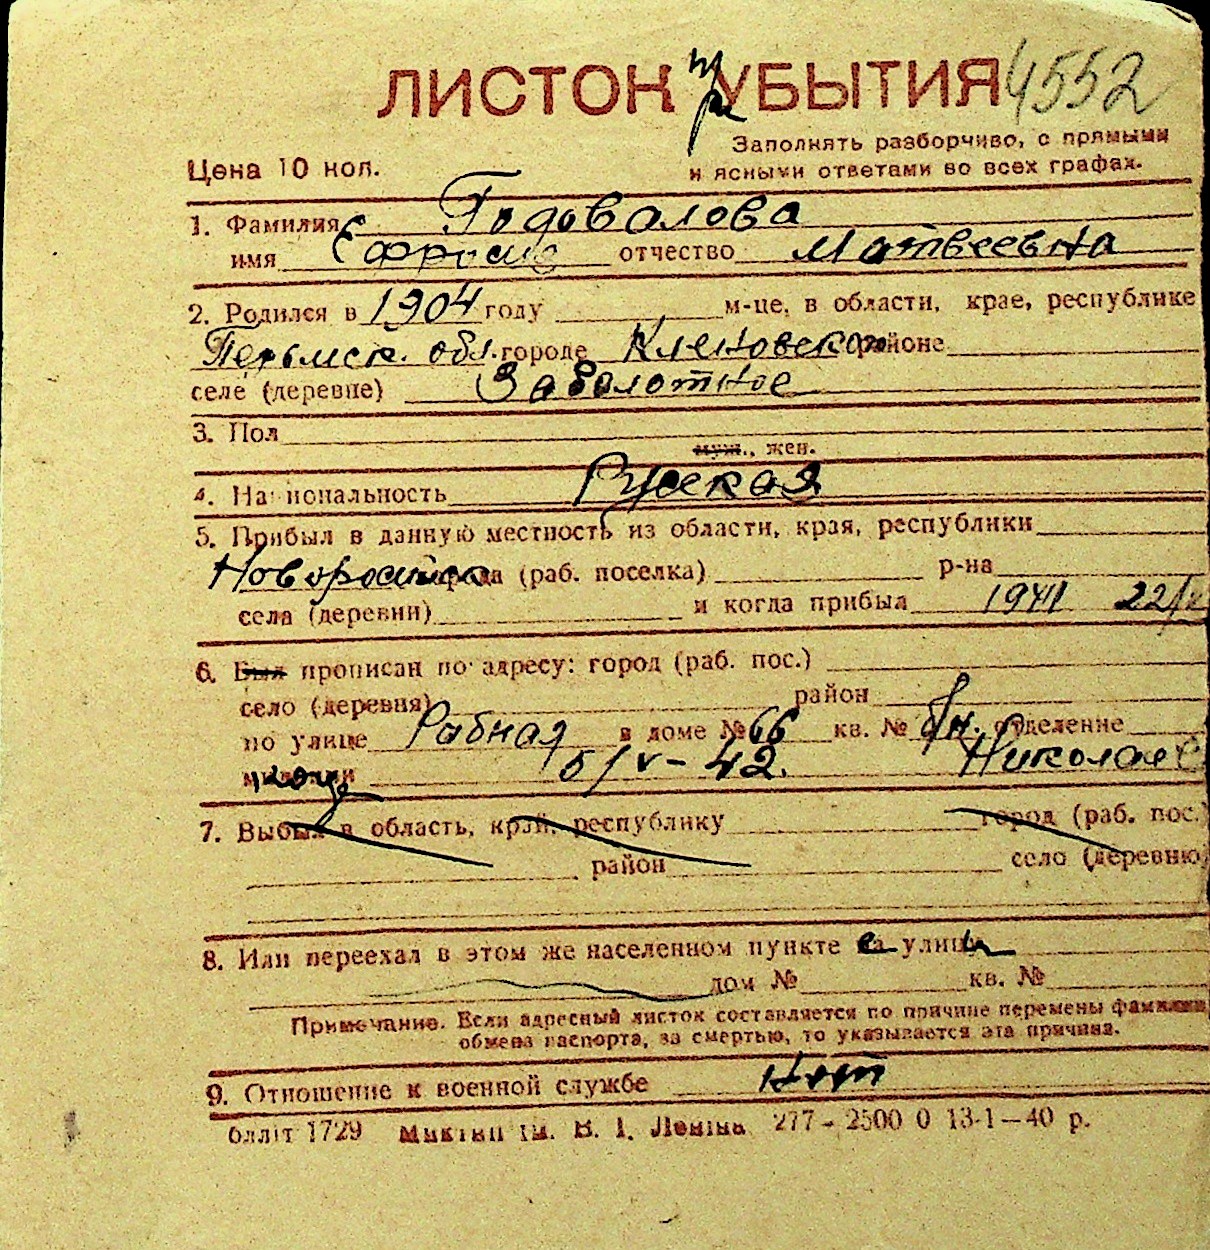 ЛИСТОК пр УБЫТИЯ 4552
Заполнять разборчиво, с прямыми
Цена 10 коп.
и ясными ответами во всех графах.
1. Фамилия Годовалова
имя Ефросин отчество Матвеевна
2. Родился в 1904 году м-це, в области, крае, республике
Пермск. обл. городе Кленовском районе
селе (деревне) Заболотное
3. Пол
муж., жен.
4. Национальность Русская
5. Прибыл в данную местность из области, края, республики
Новоросийск города (раб. поселка) р-на
села (деревни) и когда прибыл 1941 22/
6. Был прописан по адресу: город (раб. пос.)
село (деревня) район
по улице Рабная в доме № 66 кв. № б/н. отделение
милиции 5/V-42. Николаев
7. Выбыл в область, край, республику город (раб. пос.)
район село (деревню)
8. Или переехал в этом же населенном пункте с улицы
дом № кв. №
Примечание. Если адресный листок составляется по причине перемены фамилии
обмена паспорта, за смертью, то указывается эта причина.
9. Отношение к военной службе Нет
блліт 1729 Миктип ім. В. І. Леніна 277-2500 0 13-1-40 р.